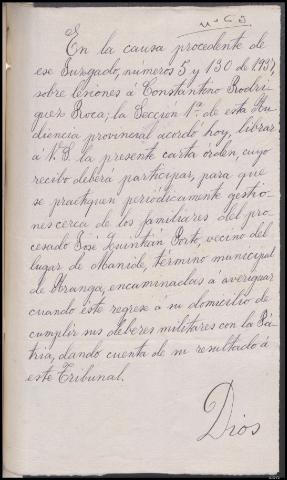 En la causa procedente de
ese Juzgado, números 5 y 130 de 1937,
sobre lesiones á Constantino Rodrí-
guez Roca; la Sección 1ª de esta Au-
diencia provincial acordó hoy, librar
á V.S. la presente carta órden, cuyo
recibo deberá participar, para que
se practiquen periódicamente gestio-
nes cerca de los familiares del pro-
cesado José Quintián Porto, vecino del
lugar de Manide, término municipal
de Aranga, encaminadas á averiguar
cuando éste regrese á su domicilio de
cumplir sus deberes militares con la Pá-
tria, dando cuenta de su resultado á
este Tribunal.
Dios